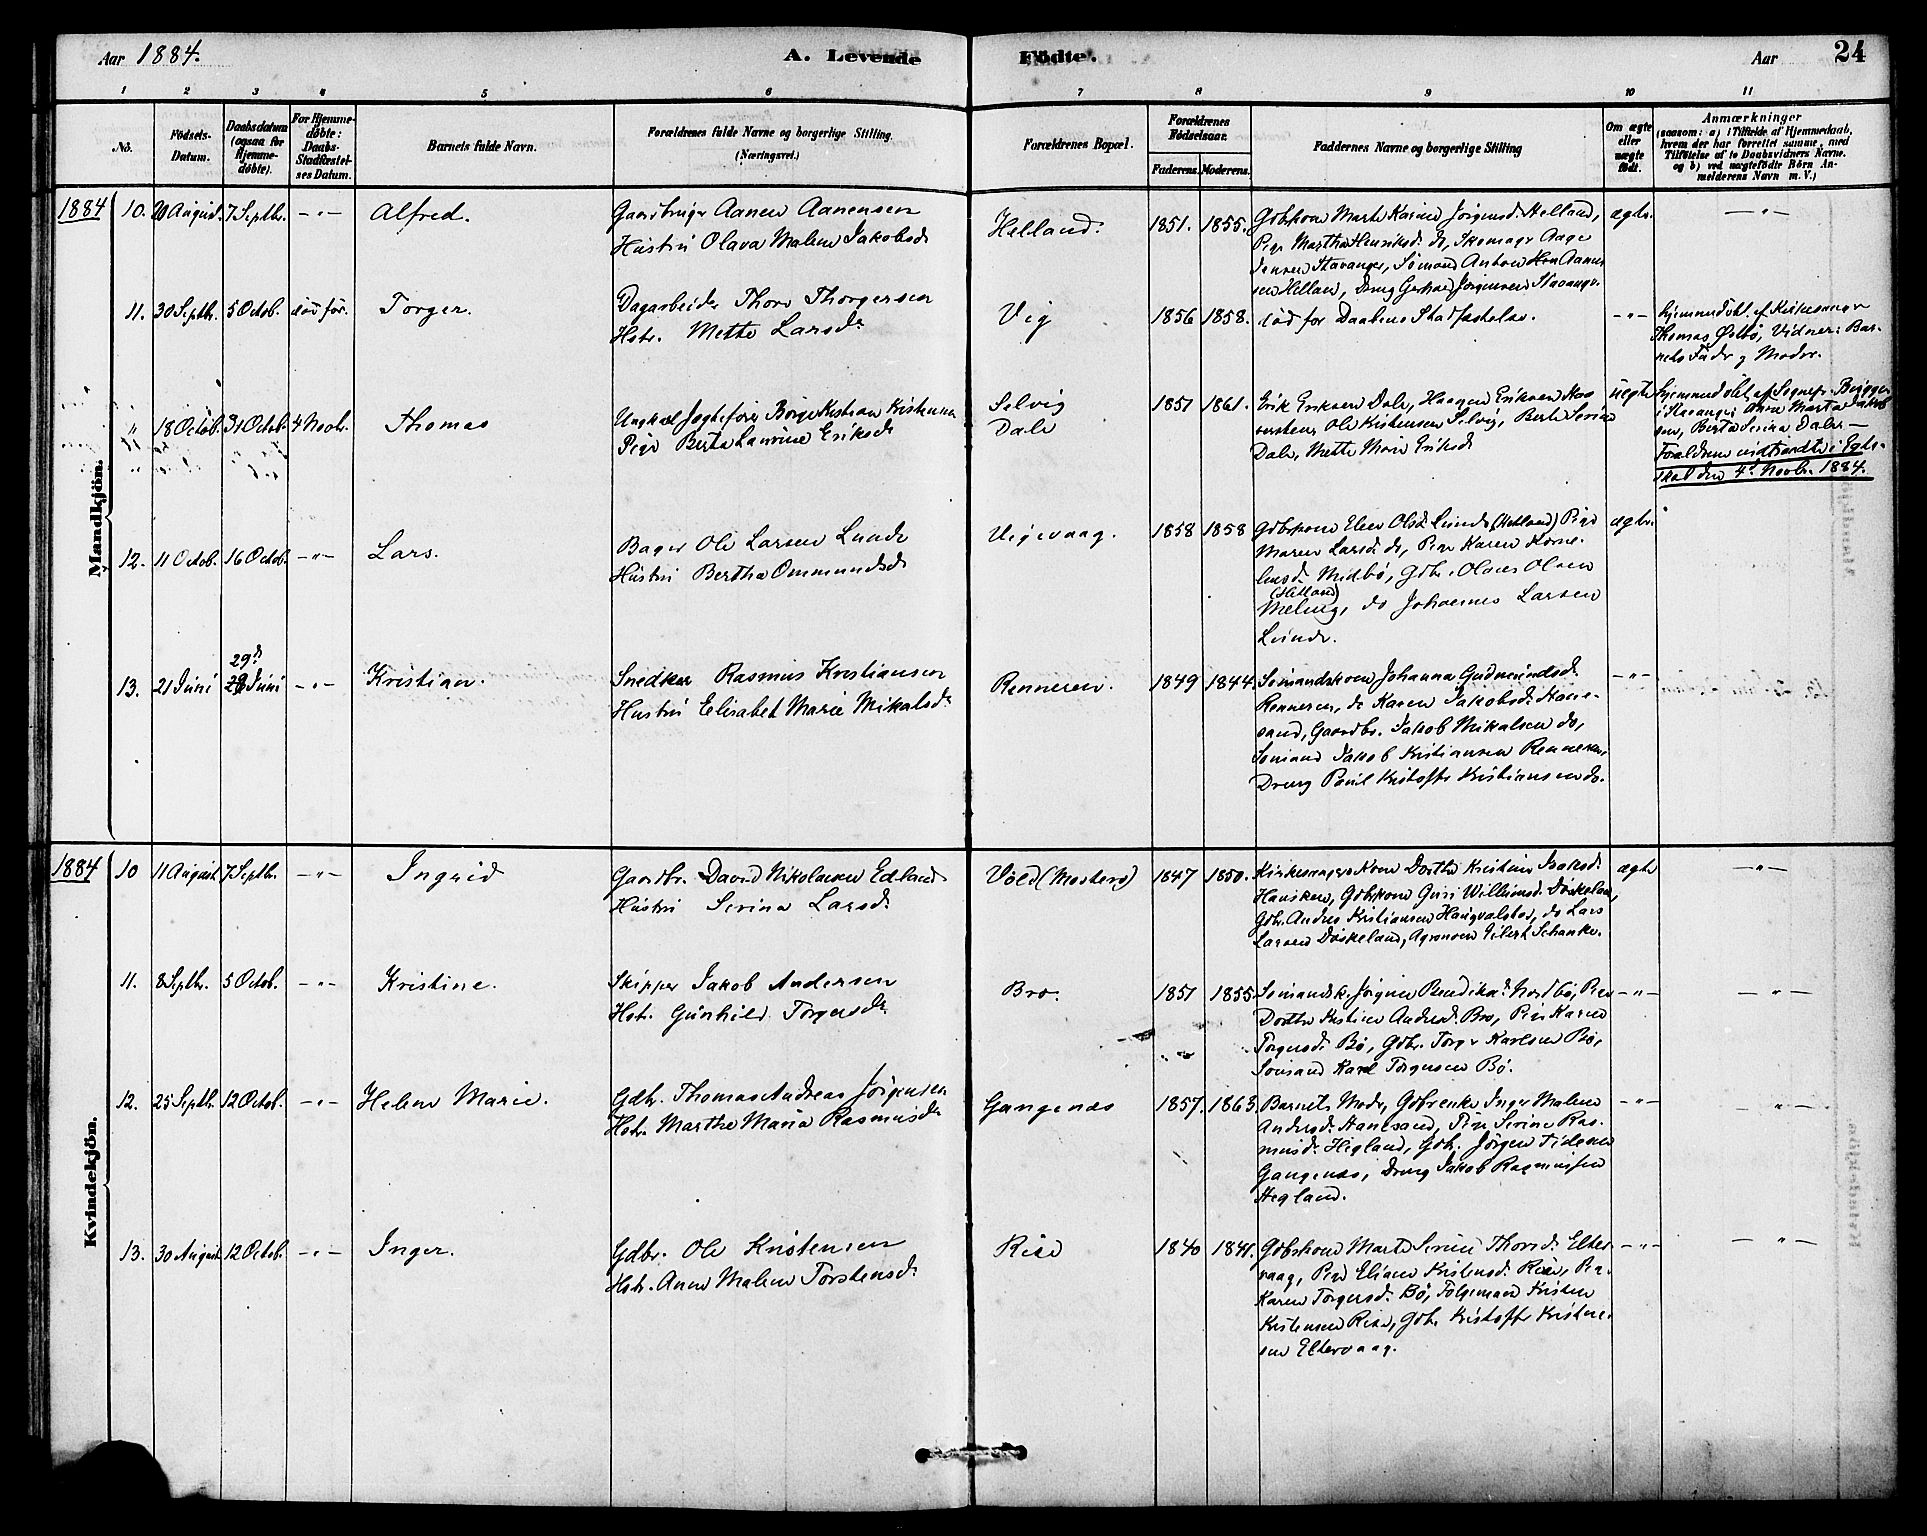 Aar 1884.
A. Levende
Födte.
Aar
24
1 2 3 4 5 6 7 8 9 10 11
No.
Födsels-Datum.
Daabsdatum (ogsaa for Hjemme-döbte).
For Hjemme-döbte: Daabs-Stadfæstel-ses Datum.
Barnets fulde Navn.
Forældrenes fulde Navne og borgerlige Stilling. (Næringsvei.)
Forældrenes Bopæl.
Forældrenes Födselsaar.
Faderens. Moderens.
Faddernes Navne og borgerlige Stilling
Om ægte eller uægte födt.
Anmærkninger
(saasom: a) i Tilfælde af Hjemmedaab,
hvem der har forrettet samme, med
Tilföielse af to Daabsvidners Navne.
og b) ved uægtefödte Börn An-
melderens Navn m. V.)
Mandkjön.
1884 10. 20 August. 7 Septbr. -"- Alfred.
Gaardbruger Aanen Aanensen
Hustru Olava Malene Jakobsd.
Helland. 1851. 1855.
Gdbkone Marte Karine Jørgensd. Helland,
Pige Martha Henriksd. do, Skomager Aage
Jensen Stavanger, Sømand Anton Aanen
sen Helland, Dreng Jørgensen Stavanger.
ægte. -"-
11. 30 Septbr. 5 Octob. død før. Torger.
Dagarbeider Thore Thorgersen
Hstr. Mette Larsdr
Vig 1856 1858.
død før Daabens Stadfæstelse.
-"-
hjemmedøbt af Kirkesanger
Thomas Østbø, Vidner: Bar-
nets Fader og Moder.
" 18 Octob. 31 Octob. 4 Novbr. Thomas
Ungkarl Jægtefører Børge Kristian Kristensen
Pige Berta Laurine Eriksdr
Selvig
Dale
1851 1861.
Erik Eriksen Dale, Haagen Eriksen
Ole Kristensen Selvig, Berte Serine
Dale, Mette Marie Eriksdr
uegte
hjemmedøbt af Sognepr.
i Stavanger Anne Marta
sen, Berta Serina Dale. —
Forældrene indtraadte i Egte-
skab den 4de Novbr. 1884.
12. 11 Octob. 16 Octob. -"- Lars.
Bager Ole Larsen Lunde
Hustru Bertha Ommundsdr
Vigevaag. 1858 1858
Gdbrkone Elen Olsdr Lunde (Hetland) Pige
Maren Larsdr do, Pige Karen Korne-
liusd. Midbø, Gdbr. Olaus Olsen
(Hetland)
Meling, do Johannes Larsen
Lunde.
ægte.
13. 21 Juni 29de Juni -"- Kristian.
Snedker Rasmus Kristiansen
Hustru Elisabet Marie Mikalsdr
Renneren. 1849 1844.
Sømandskone Johanna Gudmundsd.
Renneren, do Karen Jakobsd. Hane-
sand, Gaardbr. Jakob Mikalsen do,
Sømand Jakob Kristiansen Renneren,
Dreng Paul Kristoffer Kristiansen do.
-"-
Kvindekjön.
1884 10 11 August 7 Septbr. -"- Ingrid
Gaardbr. David Nikolaisen Edland
Hustru Serina Larsd.
Vold (Mosterø) 1847 1850.
Kirkesangerskone Dorthe Kristine Isaksd.
Hausken, Gdbrkone Guri Willumsd. Døskeland,
Gdbr. Andreas Kristiansen Haugvaldstad, do Lars
Larsen Døskeland, Agronom Eilert Schanke.
ægte -"-
11. 8 Septbr. 5 Octob. -"- Kristine.
Skipper Jakob Andersen
Hstr. Gunhild Torgersdr
Bro. 1851 1855.
Sømandsk. Jørgine Bendiksd. Nordbø, Pige
Dorthe Kristine Andersd. Bro, Pige Karen
Torgersd. Bø, Gdbr. Torger Karlsen Bø,
Sømand Karl Torgersen Bø.
-"- -"-
12. 25 Septbr. 12 Octob. -"- Helene Marie.
Gdbr. Thomas Andreas Jørgensen
Hstr. Marthe Maria Rasmusdr
Gangenæs 1857. 1863.
Barnets Moder, Gdbrenke Inger Malene
Andersd. Hanesand, Pige Serine Ras-
musd. Hegland, Gdbr. Jørgen Tidemn
Gangenæs, Dreng Jakob Rasmussen
Hegland.
-"- -"-
13. 30 August 12 Octob. -"- Inger.
Gdbr. Ole Kristensen
Hstr. Anne Malene Torstensd.
Rise 1840 1841.
Gdbrkone Marte Serine Thorsd. Elter-
vaag, Pige Eliane Kristensd. Rise, Pige
Karen Torgersd. Bø, Følgemand Kristen
Kristensen Rise, Gdbr. Kristoffer Kristen-
sen Eltervaag.
-"- -"-